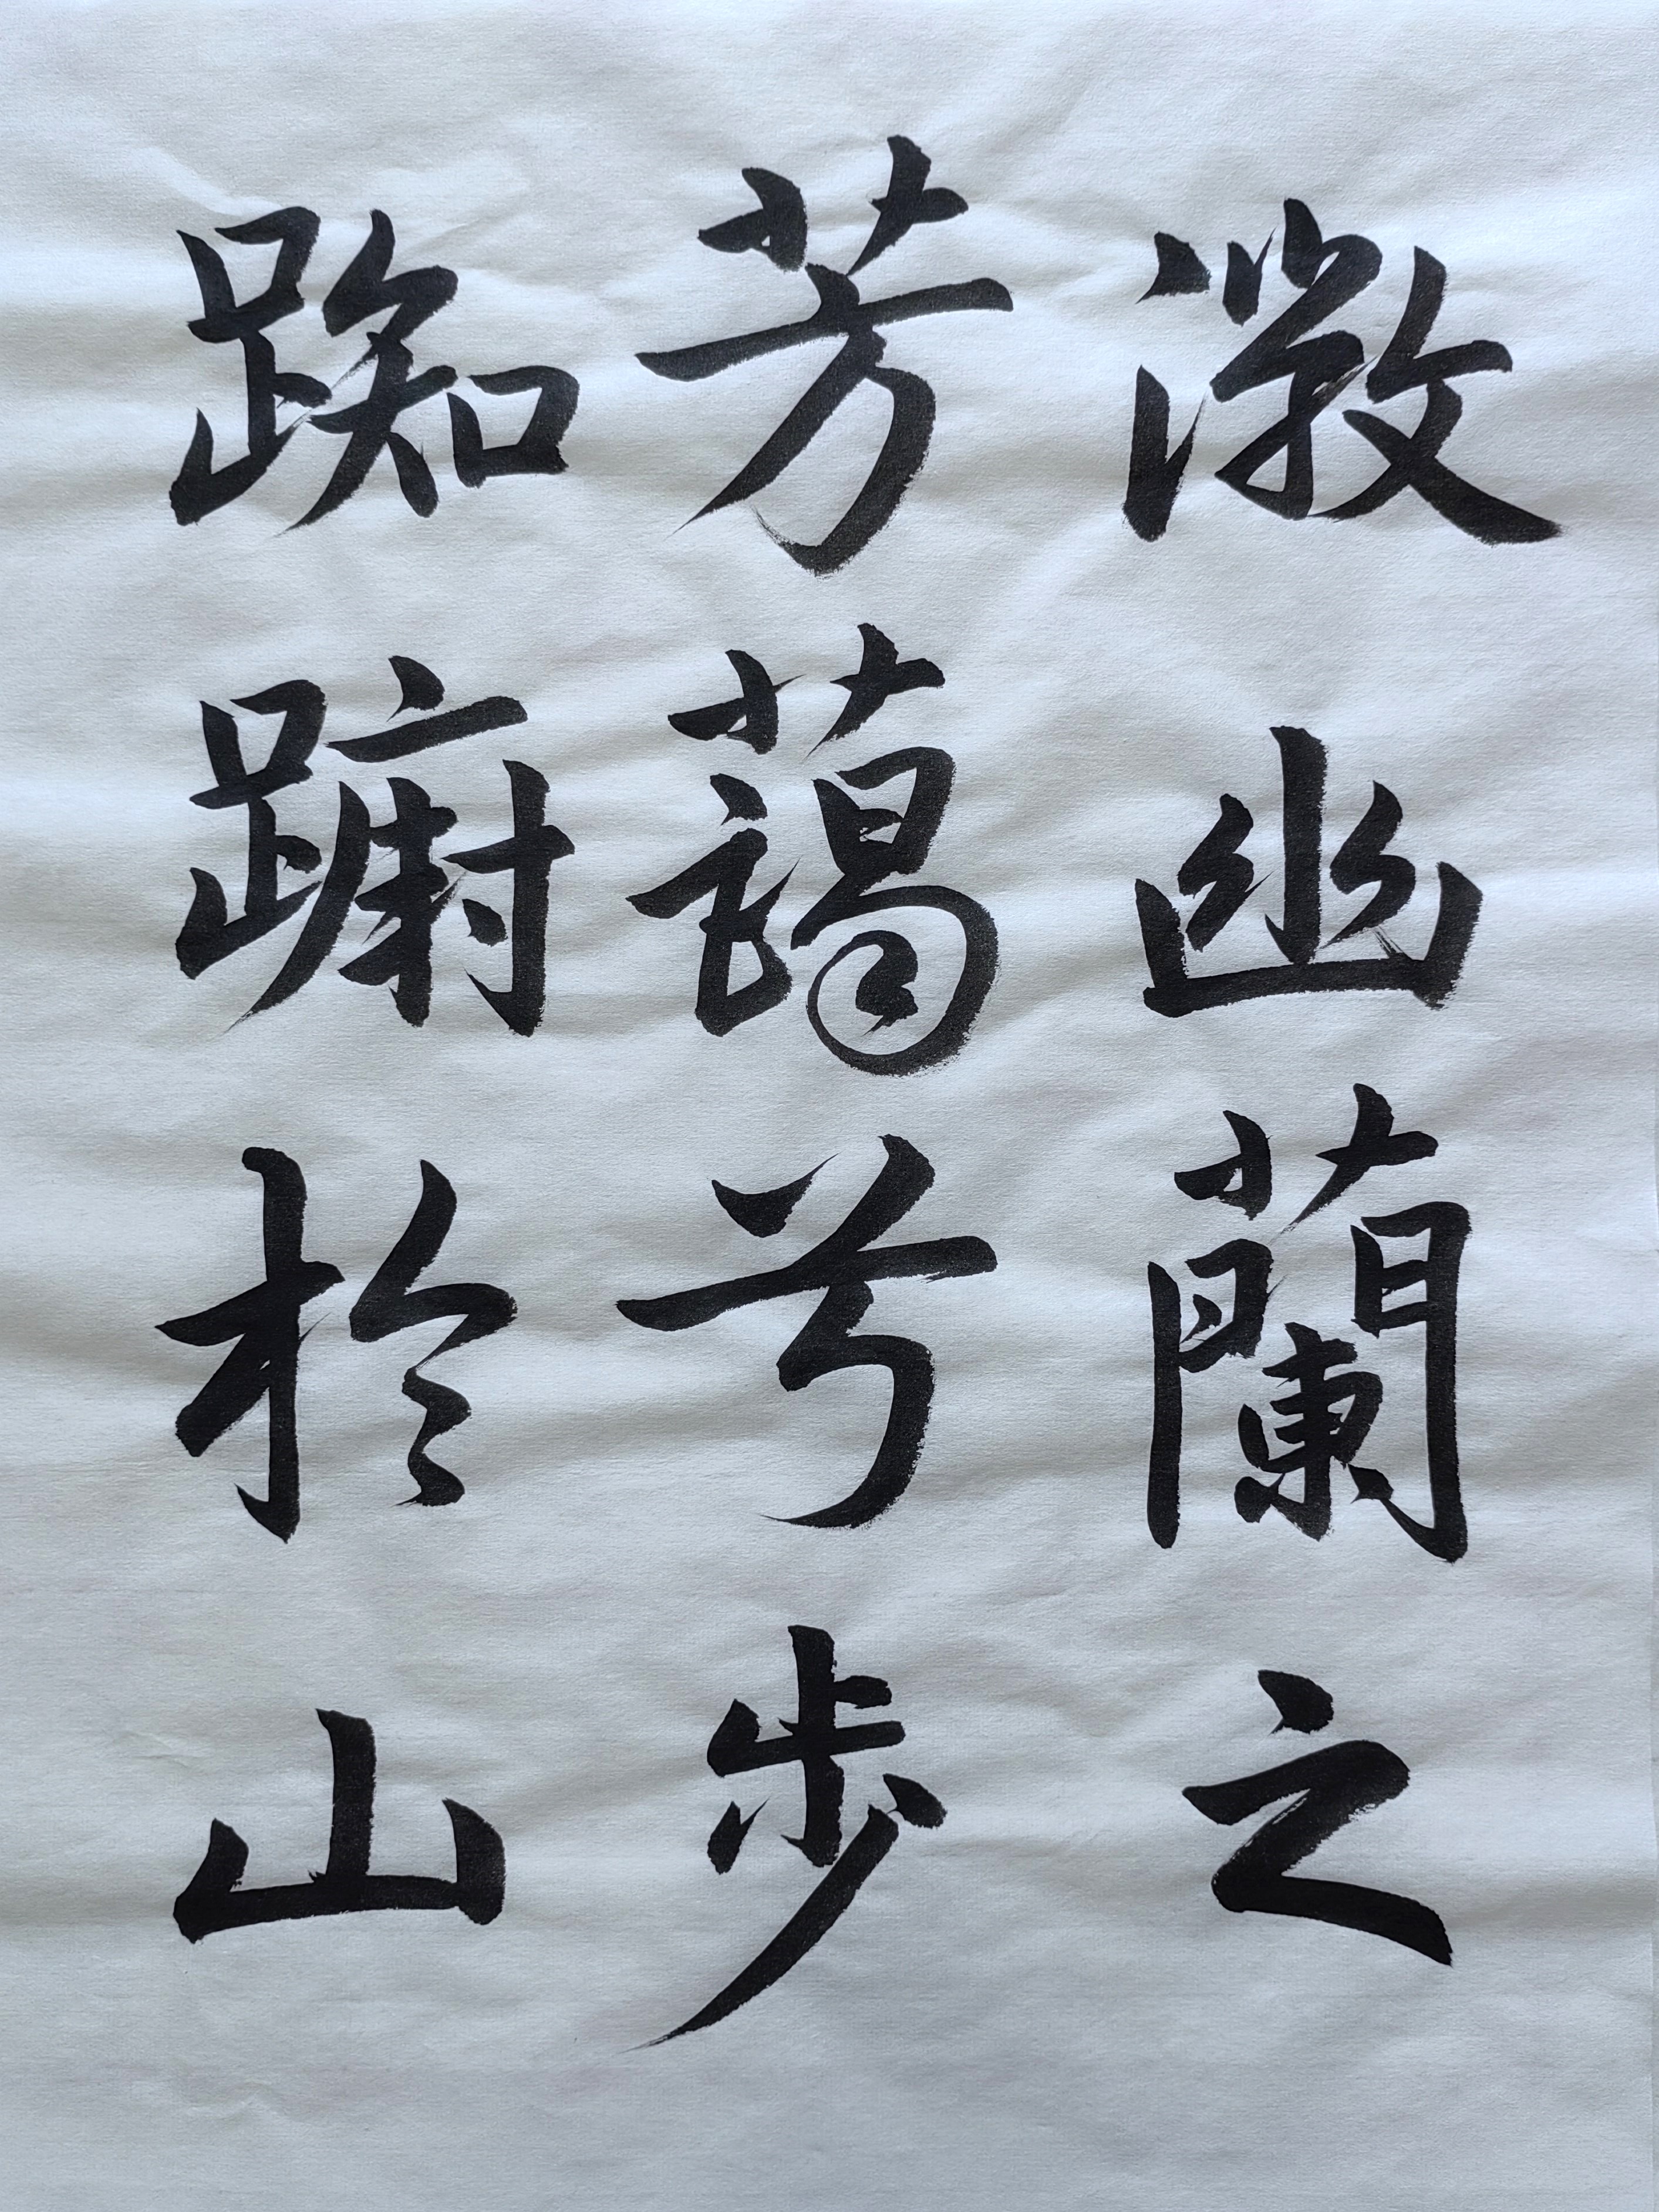 微幽蘭之
芳藹兮步
踟躕於山